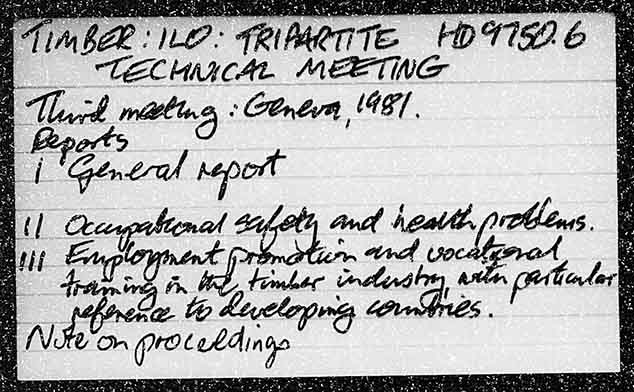 TIMBER: ILO: TRIPARTITE HD9750.6
TECHNICAL MEETING
Third meeting: Geneva, 1981.
Reports
I General report
II Occupational safety and health problems.
III Employment promotion and vocational
training in the timber industry with particular
reference to developing countries.
Note on proceedings